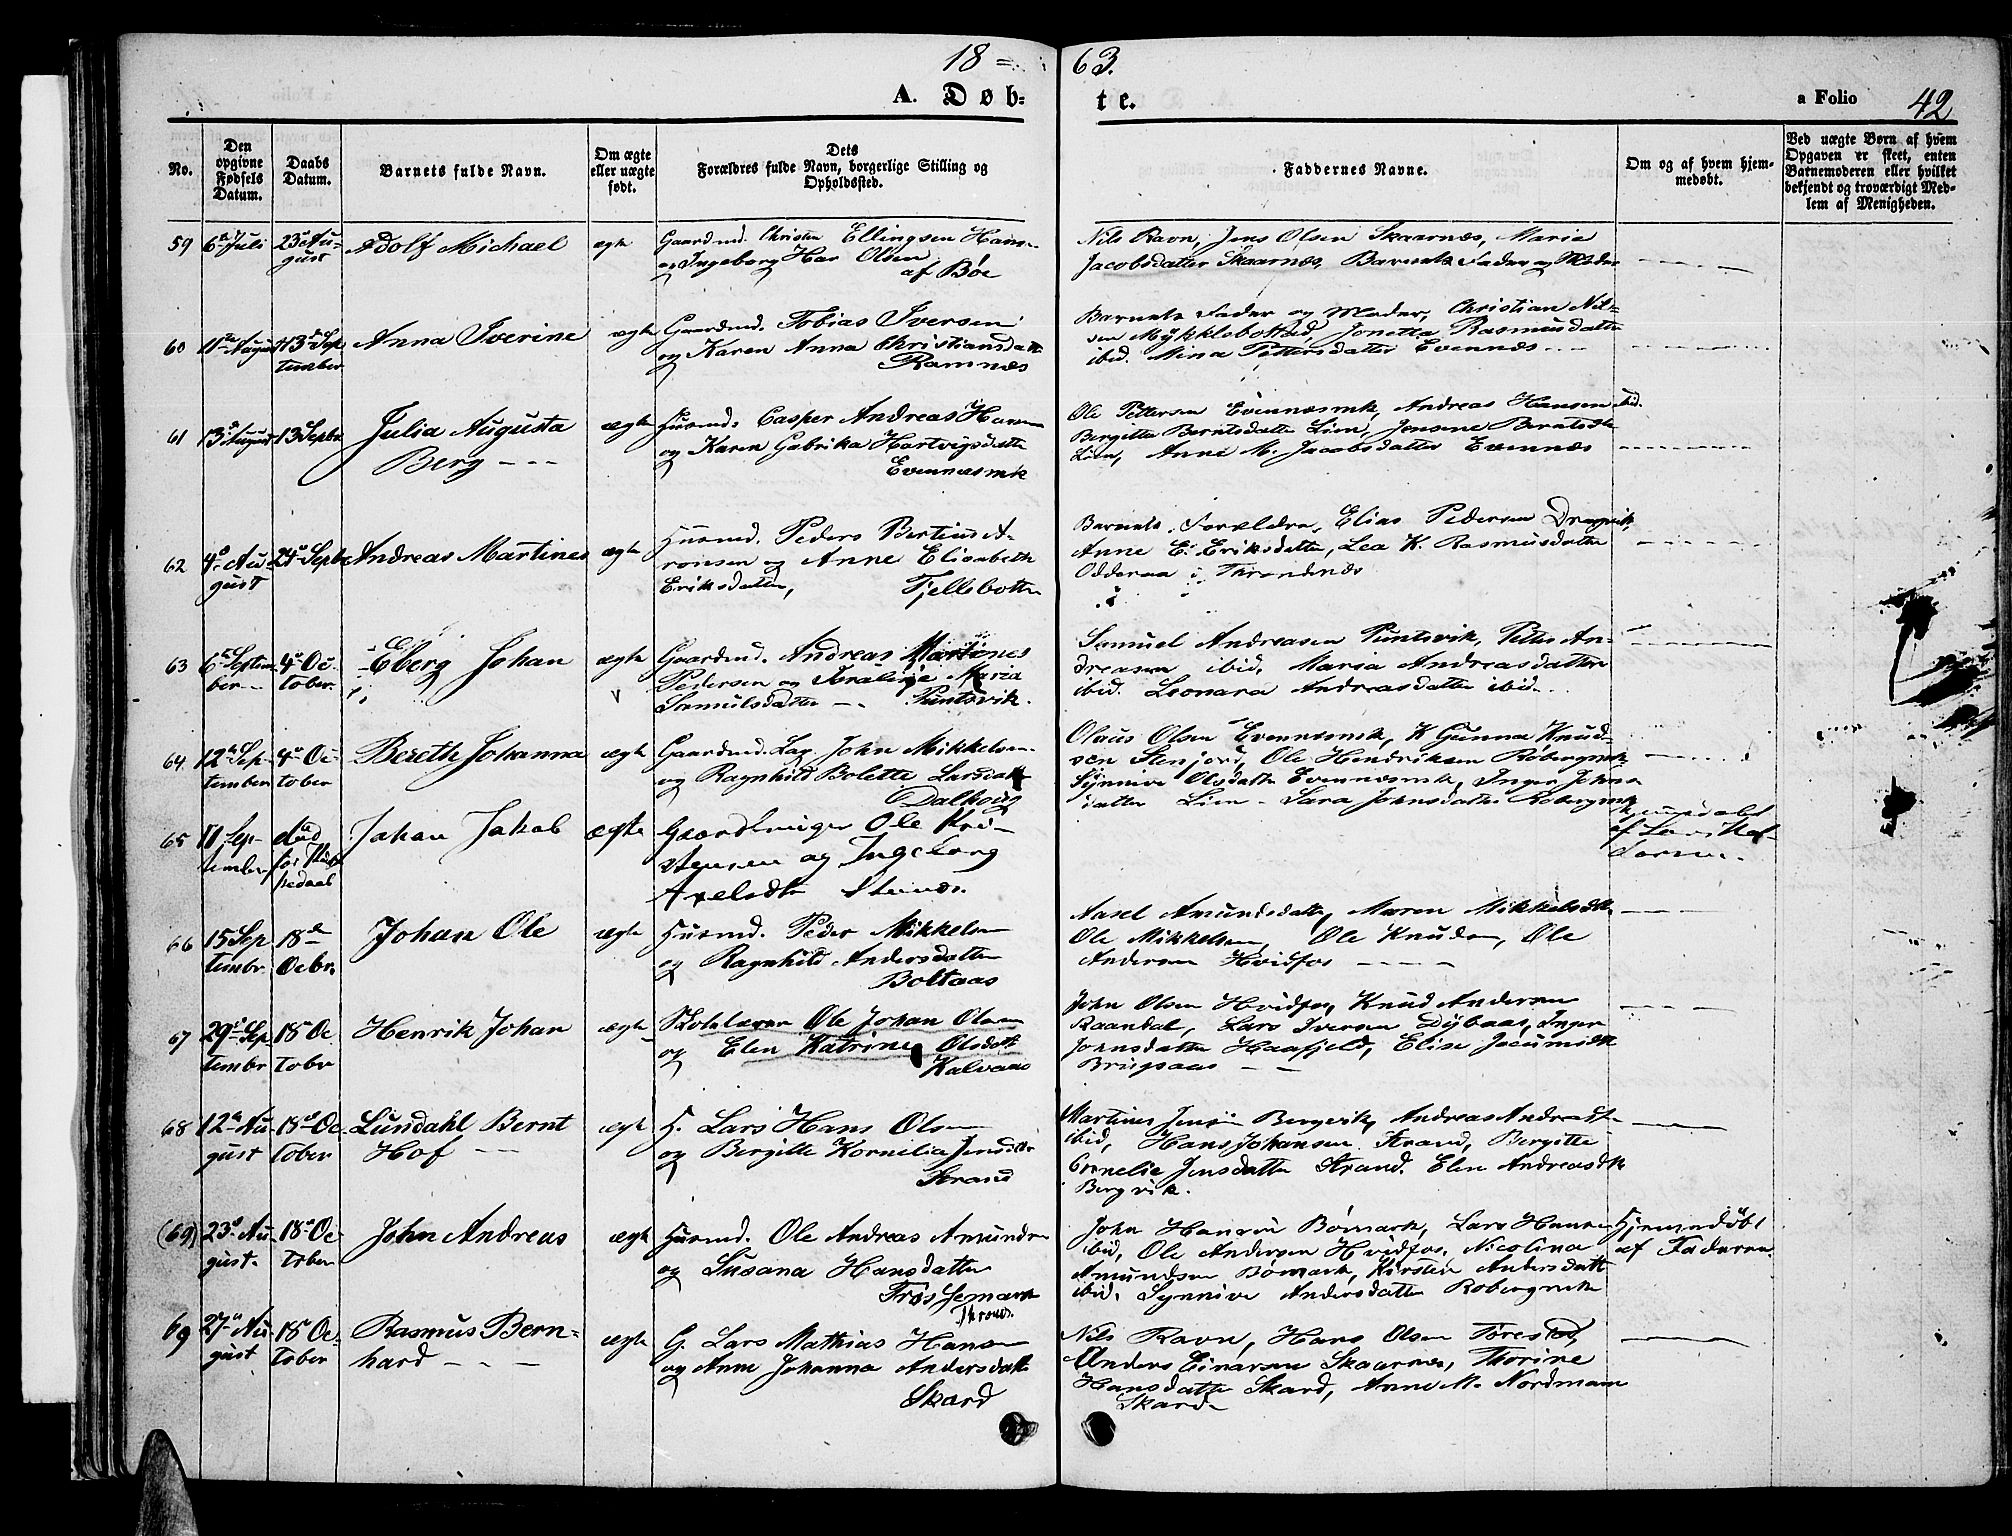 18 63.
A. Døbte.
a Folio 42
No.
Den opgivne Fødsels Datum.
Daabs Datum.
Barnets fulde Navn.
Om ægte eller uægte født.
Dets Forældres fulde Navn, borgerlige Stilling og Opholdssted.
Faddernes Navne.
Om og af hvem hjemmedøbt.
Ved uægte Børn af hvem Opgaven er skeet, enten Barnemoderen eller hvilket bekjendt og troværdigt Medlem af Menigheden.
59 6 Juli 23 August Adolf Michael ægte
Gaardmd. Christen Ellingsen
og Ingeborg Olsen
af Böe
Nils Ravn, Jens Olsen Skaarnæs, Maria
Jacobsdatter Skaarnæs, Barnets Fader og Moder
60 11 August 13 September Anna Iverine ægte
Gaardmd. Tobias Iversen
og Karen Anna Christiansdatt
Ramnæs
Barnets Fader og Moder, Christian Nilsen
Mykklebostad, Jonetta Rasmusdatter
ibid. Mina Pettersdatter Evennæs
61 13 August 13 Septbr Julia Augusta
Berg
ægte
Husmd. Casper Andreas Hansen
og Karen Gabrika Hartvigsdatte
Evennæsmk
Ole Pettersen Evennæsmk, Andreas Hansen ibid.
Bergitte Berntsdatter Lien, Jensine Berntsdtr
Lien, Anne M. Jacobsdatter Evennæs
62 4 August 24 Septbr Andreas Martines ægte
Husmd. Peders Bertius Aronsen
og Anne Elisabeth
Eriksdatter, Fjellebotten
Barnets Forældre, Elias Pedersen
Anne E. Eriksdatter, Lea K. Rasmusdatter
Odderaa i Throndenæs
63 6 September 4 October Eberg Johan ægte
Gaardmd. Andreas Martines
Pedersen og Maria
Samuelsdatter Puntsvik.
Samuel Andreasen Puntsvik, Petter Andreasen
ibid. Maria Andreasdatter
ibid. Leonara Andreasdatter ibid.
64 12 September 4 October Bereth Johanna ægte
Gaardmd. Lag. John Mikkelsen
og Ragnhild Bolette Larsdatt
Dalhoug
Olaus Olsen Evennæsmk, K Gunna Knudsen
Stenjord, Ole Hendriksen Røbergmk
Synnive Olsdatter Evennæsmk, Inger Johnsdatter
Lien. Sara Johnsdatter Røbergmk
65 11 September död før Kirkedaab Johan Jakob ægte
Gaardbruger Ole Kristensen
og Ingeborg
Axelsdtr
Hjemmedøbt
af Lars
66 15 Septembr 18 Octbr. Johan Ole ægte
Husmd. Peder Mikkelsen
og Ragnhild Andersdatter
Boltaas
Aasel Amundsdatter, Maren Mikkelsdtr
Ole Mikkelsen, Ole Knudsen, Ole
Andersen Hvidfos
67 29 Septembr 18 Octobr Henrik Johan ægte
Skolelærer Ole Johan Olsen
og Elen Katrine Olsdatt
Kalvaas
John Olsen Hvidfos, Knud Andersen
Raandal, Lars Iversen Dybaas, Inger
Johnsdatter Haafjeld, Elise
68 12 August 18 October Lundahl Bernt
Hof
ægte
H. Lars Hans Olsen
og Bergitte Kornelia Jensdtr
Strand
Martines Jensen Bergvik, Andreas
ibid, Hans Johansen Strand, Bergitte
Cornelia Jensdatter Strand. Elen Andreasdtr
Bergvik.
(69) 23 August. 18 October John Andreas ægte
Husmd. Ole Andreas Amundsen
og Susana Hansdatter
John Hansen Bømark, Lars Hansen
ibid, Ole Andersen Hvidfos, Nicolina
Amundsen Bømark, Kirsten Andersdatt
ibid. Synnive Andersdatter Robergmk
Hjemmedöbt
af Faderen.
69 27 August 18 October Rasmus Bernhard
ægte
G. Lars Mathias Hansen
og Anne Johanna Andersdatt
Skard
Nils Ravn, Hans Olsen Tørestad,
Anders Einarsen Skaarnæs, Thorine
Hansdatter Skard, Anne M. Nordmann
Skard